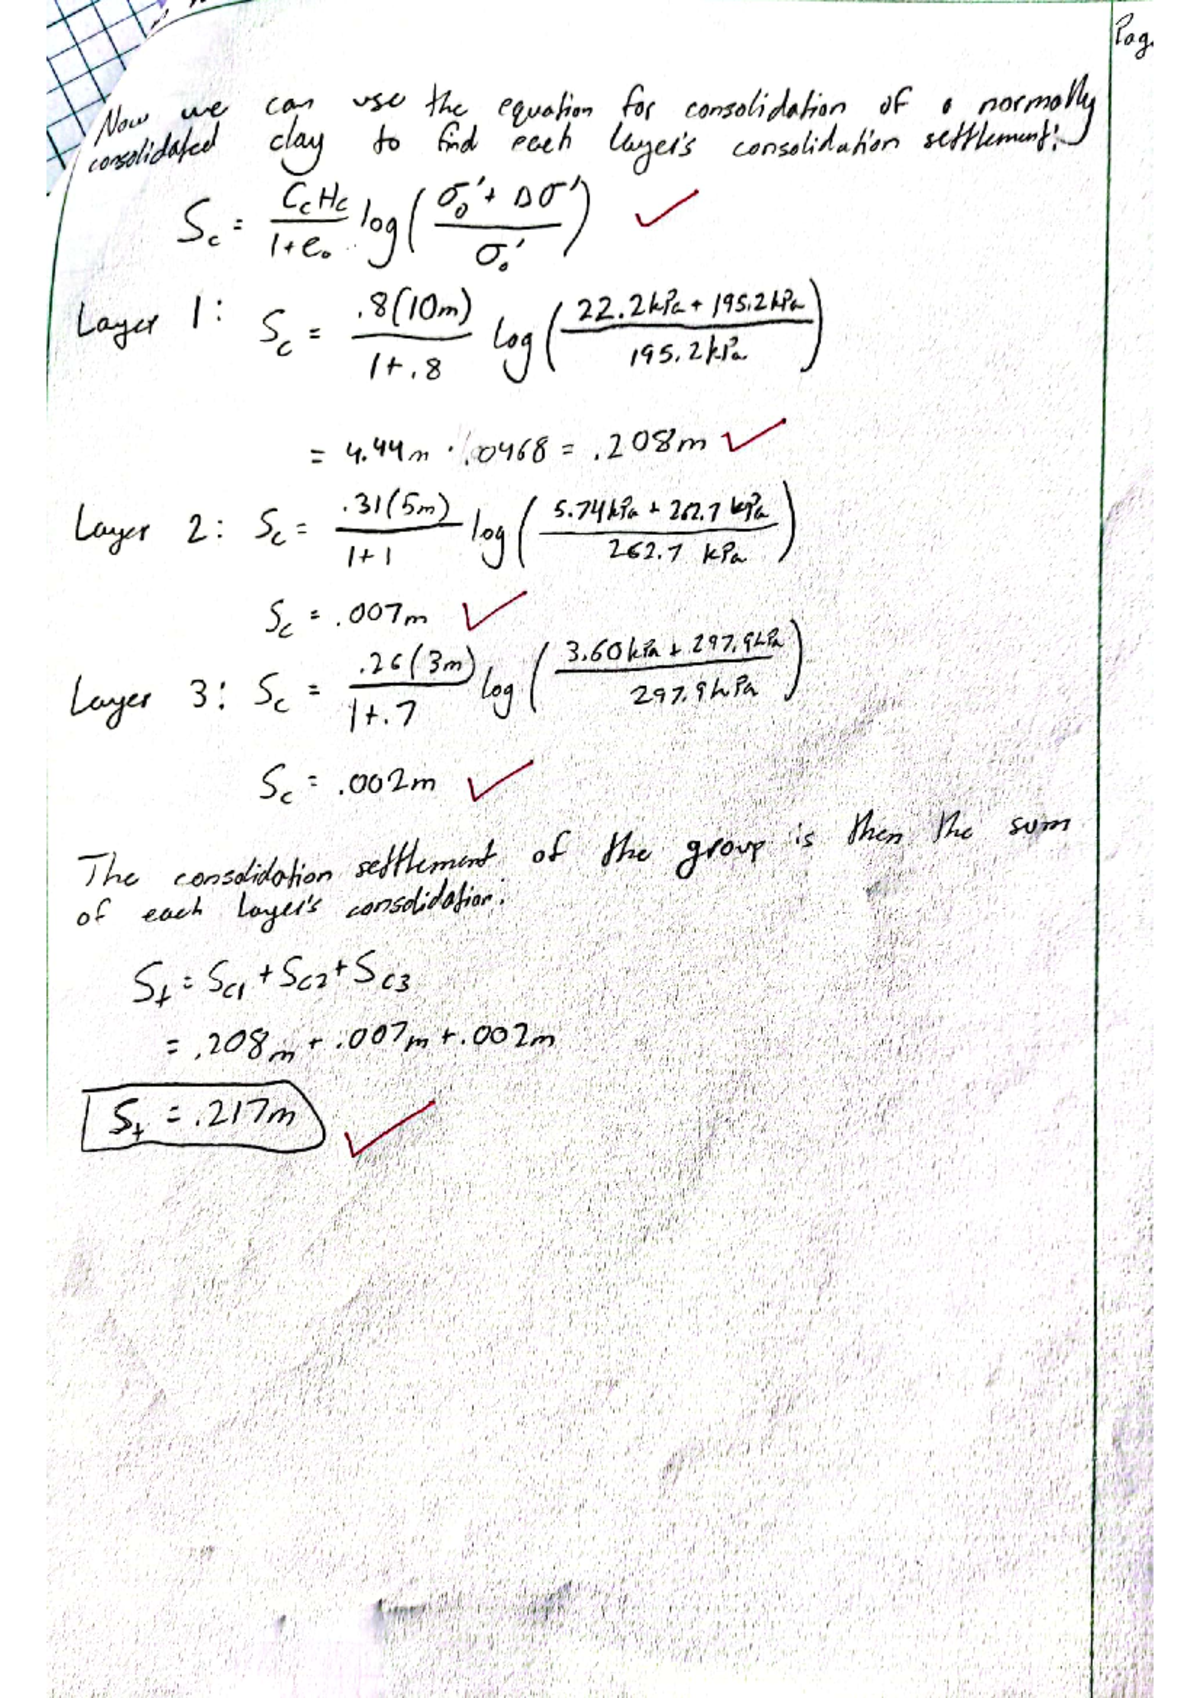 Pag.
Now we can use the equation for consolidation of a normally
consolidated clay to find each layer's consolidation settlement:
Sc = CcHc/1+e₀ log(σ₀'+Δσ'/σ₀')
Layer 1: Sc = .8(10m)/1+.8 log(22.2kPa+195.2kPa/195.2kPa)
= 4.44m · .0468 = .208m
Layer 2: Sc = .31(5m)/1+1 log(5.74kPa+262.7kPa/262.7 kPa)
Sc = .007m
Layer 3: Sc = .26(3m)/1+.7 log(3.60kPa+297.9kPa/297.9kPa)
Sc = .002m
The consolidation settlement of the group is then the sum
of each layer's consolidation:
St = Sc1+Sc2+Sc3
= .208m+.007m+.002m
St = .217m